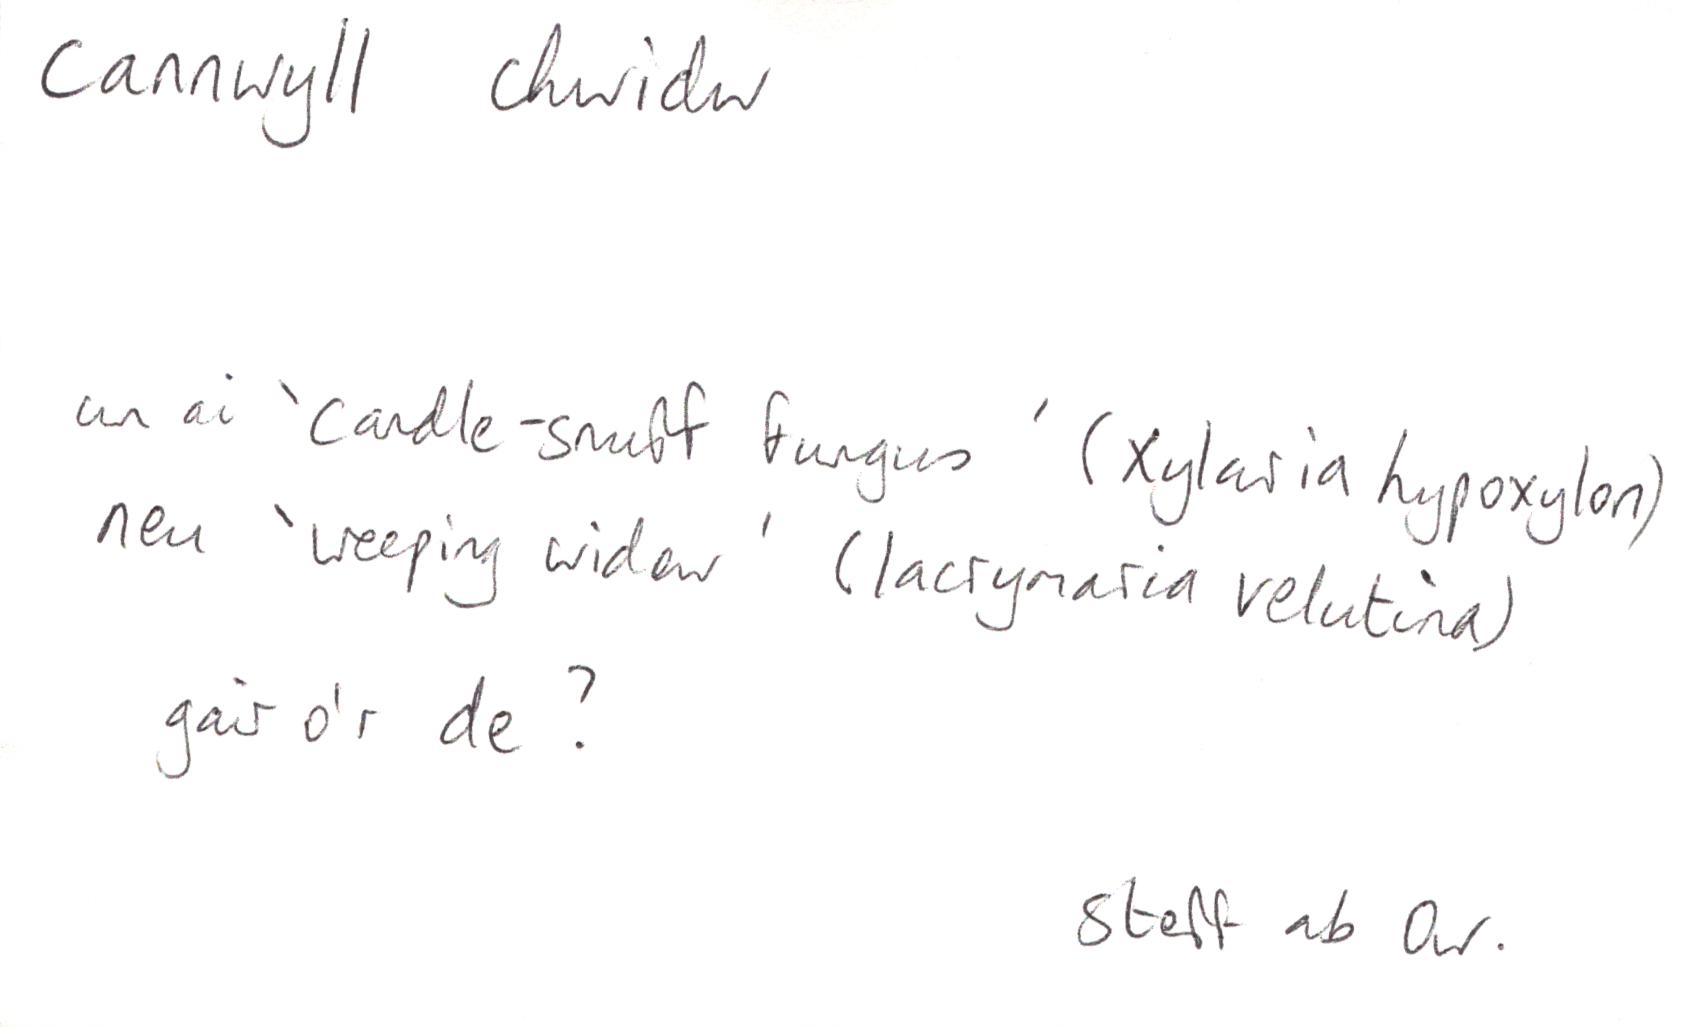 Cannwyll chwidw
un ai 'Candle-snuff fungus' (Xylaria hypoxylon)
neu 'weeping widow' (lacrymaria velutina)
gair o'r de?
Steff ab Ow.